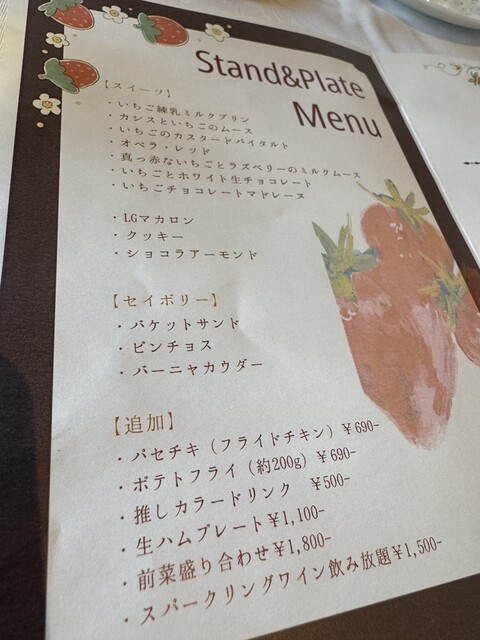 Stand&Plate
Menu
【スイーツ】
・いちご練乳ミルクプリン
・カシスといちごのムース
・いちごのカスタードパイタルト
・オペラ・レッド
・真っ赤ないちごとラズベリーのミルクムース
・いちごとホワイト生チョコレート
・いちごチョコレートマドレーヌ
・LGマカロン
・クッキー
・ショコラアーモンド
【セイボリー】
・バケットサンド
・ピンチョス
・バーニャカウダー
【追加】
・パセチキ（フライドチキン）￥690-
・ポテトフライ（約200g）￥690-
・推しカラードリンク ￥500-
・生ハムプレート￥1,100-
・前菜盛り合わせ￥1,800-
・スパークリングワイン飲み放題￥1,500-